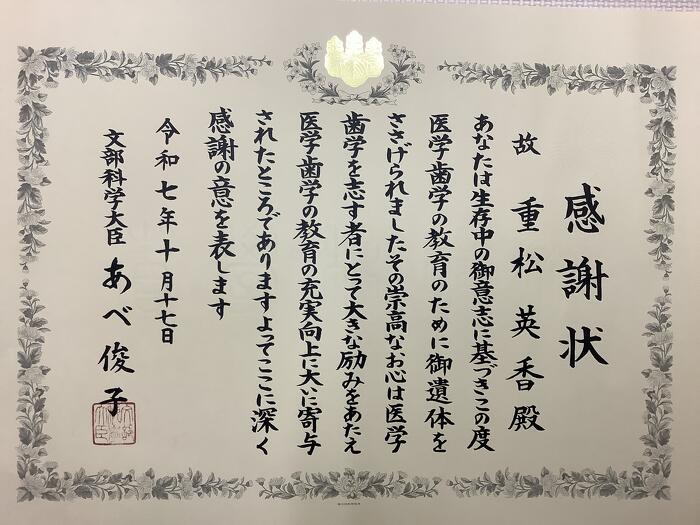 感謝状
故 重松英香殿
あなたは生存中の御意志に基づきこの度
医学歯学の教育のために御遺体を
ささげられましたその崇高なお心は医学
歯学を志す者にとって大きな励みをあたえ
医学歯学の教育の充実向上に大いに寄与
されたところでありますよってここに深く
感謝の意を表します
令和七年十月十七日
文部科学大臣 あべ俊子